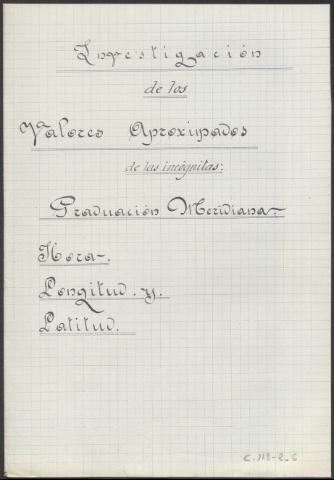 Investigación
de los
Valores Aproximados
de las incógnitas:
Graduación Meridiana-
Hora-.
Longitud. y.
Latitud.
C.118-2-6